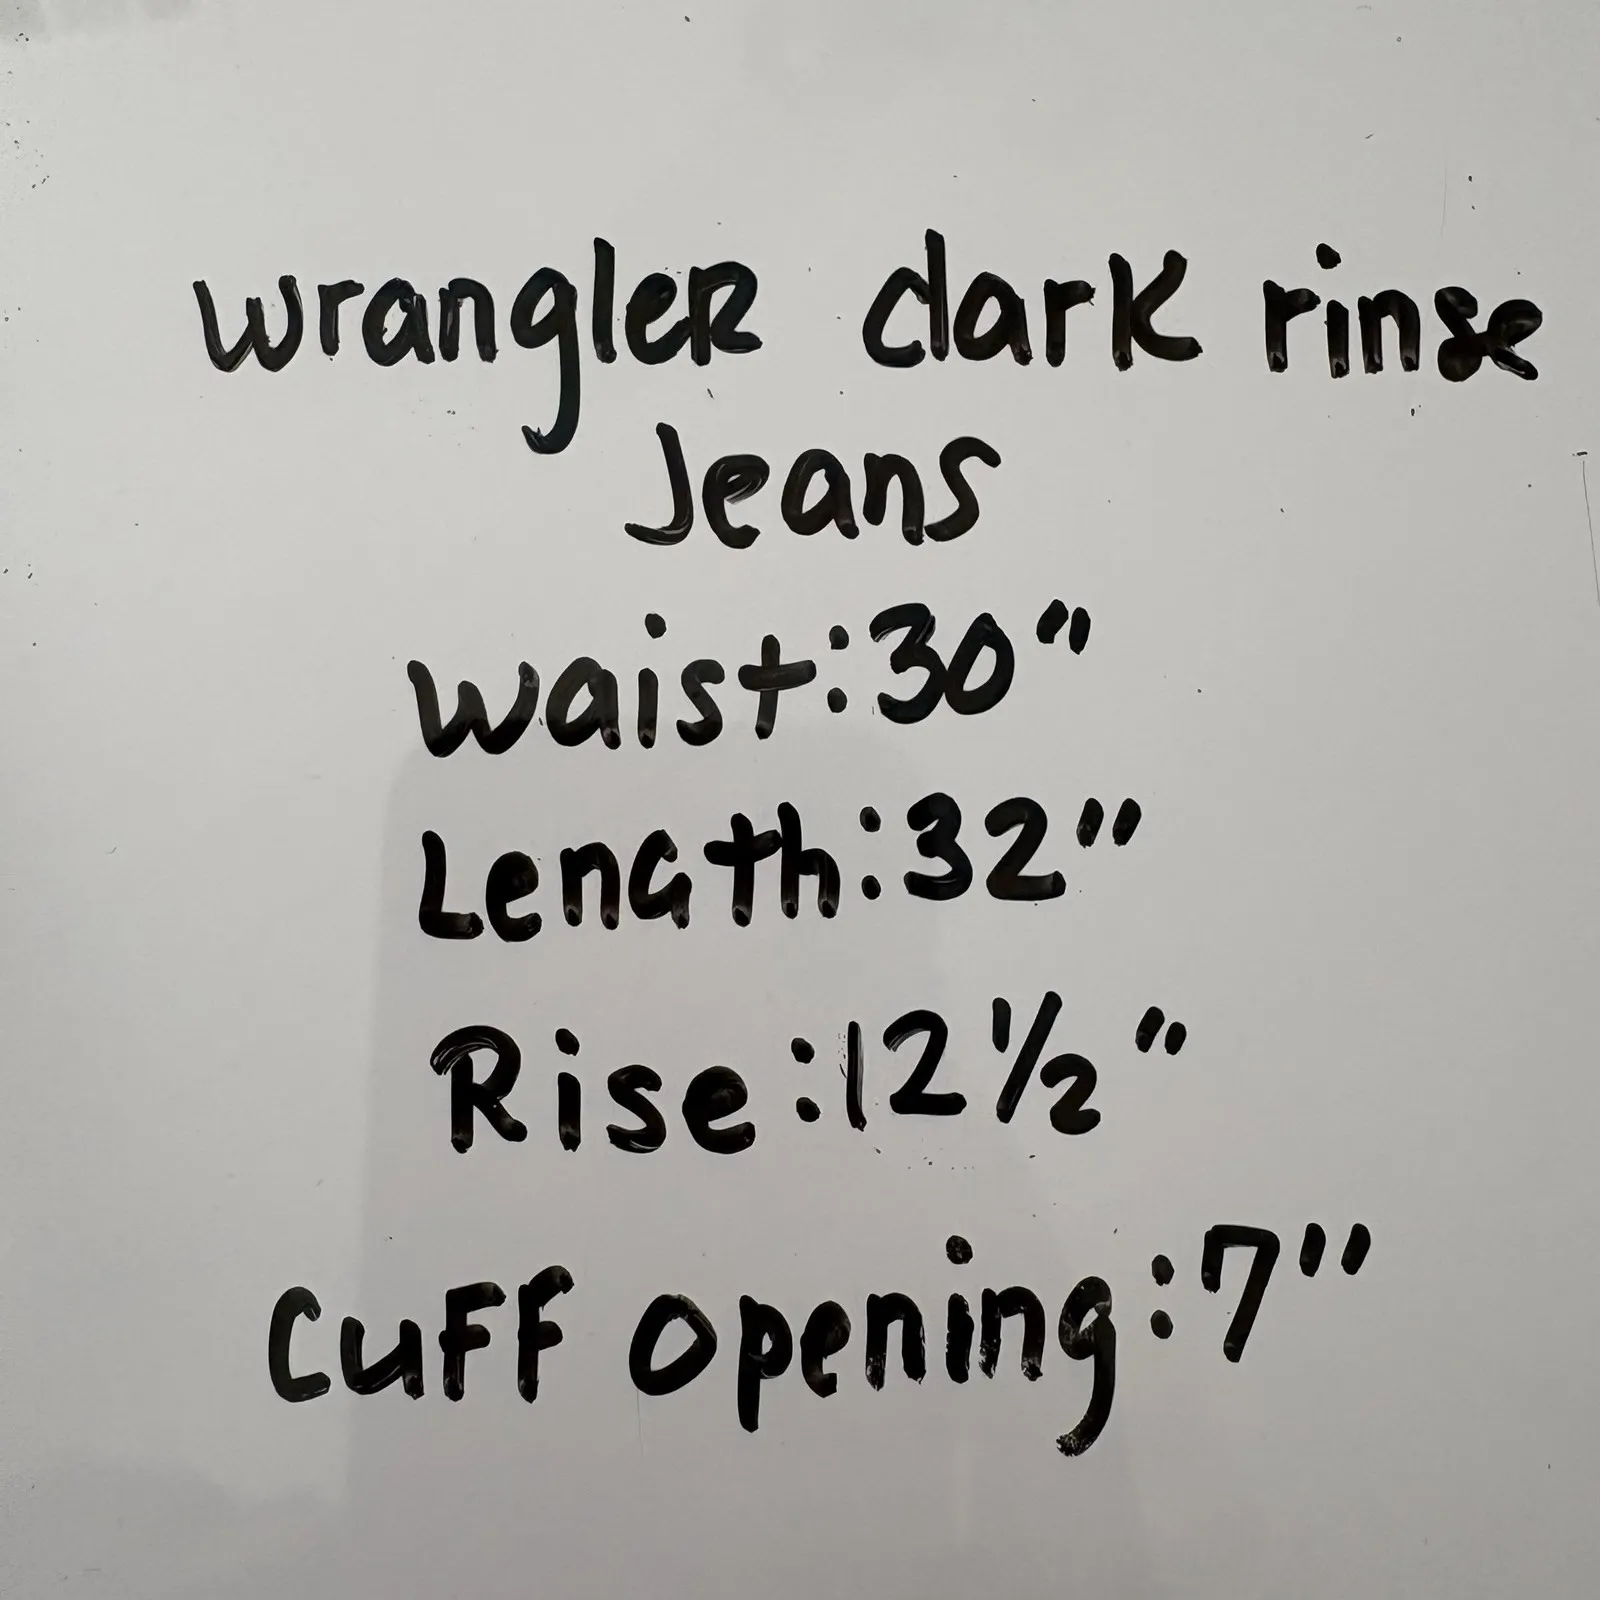 wrangler dark rinse
Jeans
Waist:30"
Length:32"
Rise:12½"
Cuff opening:7"